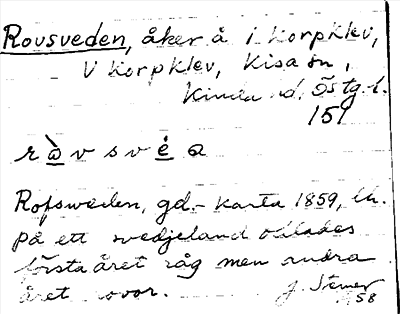 Rovsveden, åker å i Korpklev,
V Korpklev, Kisa sn,
Kinda hd, Östg. l.
151
r ò v s v é a
Rofsweden, gd.- karta 1859, 
på ett svedjeland odlades
första året råg men andra
året rovor. J. Stener
58